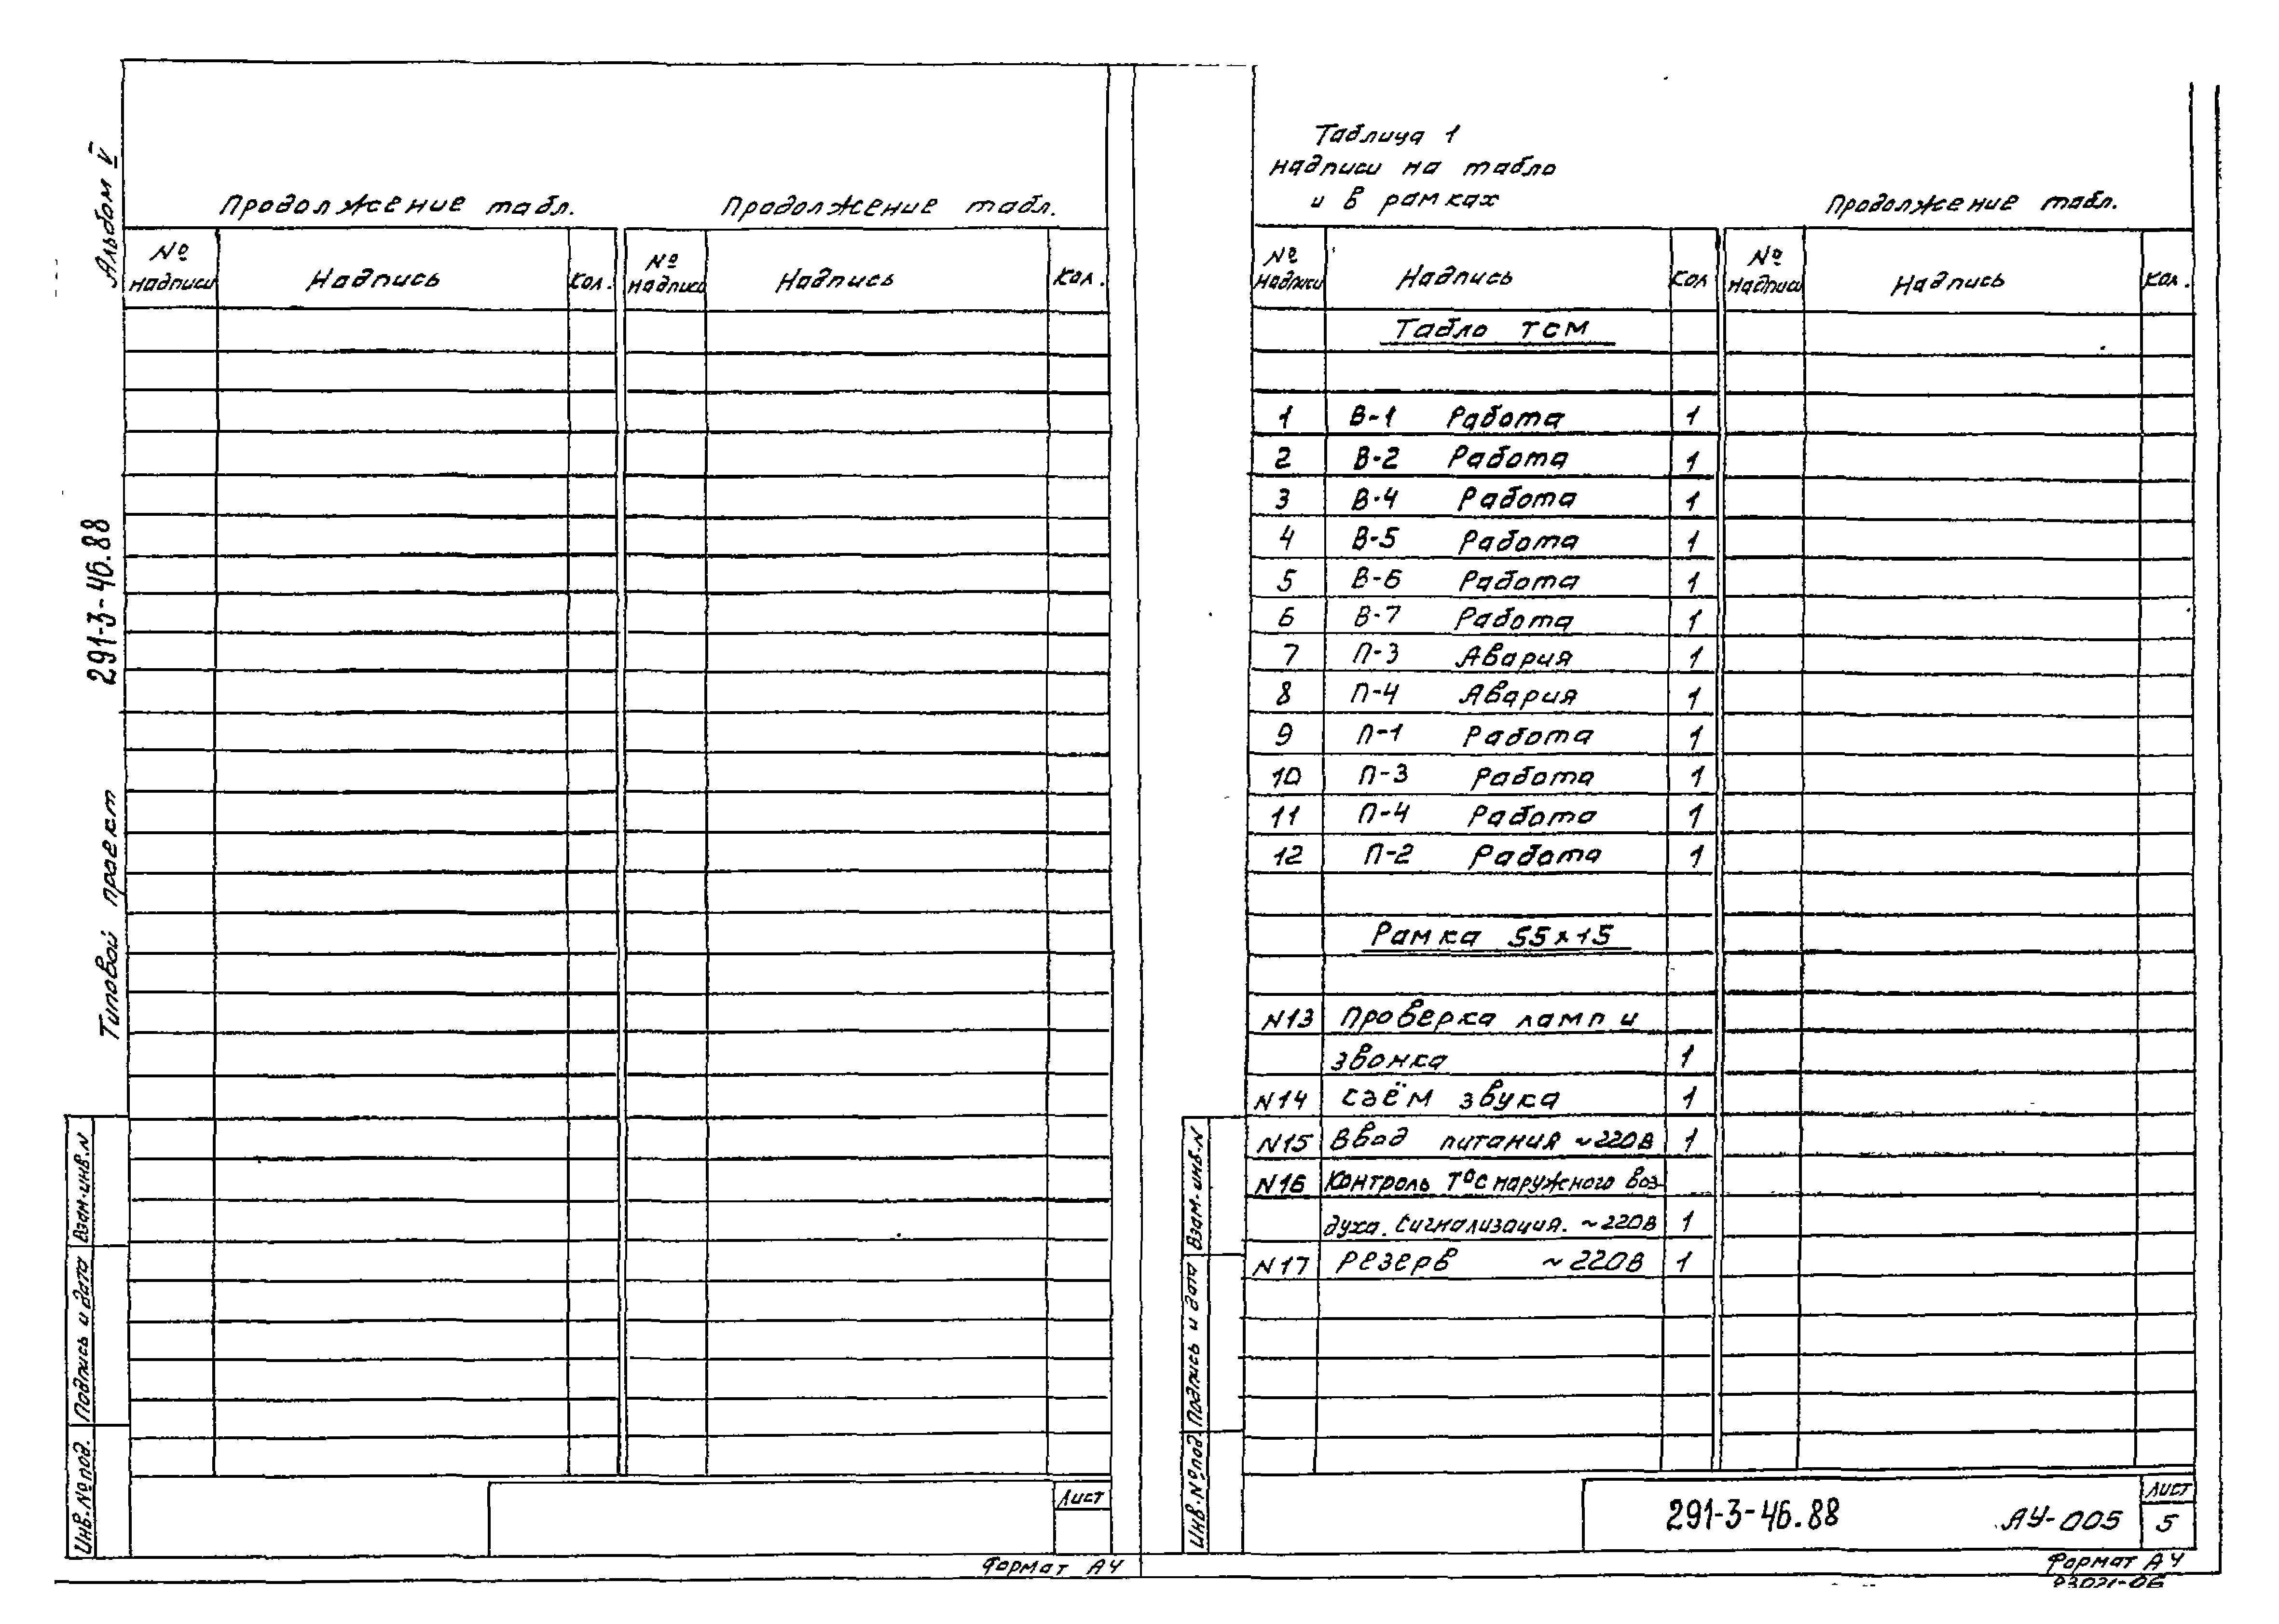 Альбом V
291-3-46.88
Типовой проект
Взам.инв.N
Подпись и дата
Инв.№ подл.
Продолжение табл. Продолжение табл.
№ надписи Надпись Кол. № надписи Надпись Кол.
Лист
Формат А4
Таблица 1
Надписи на табло
и в рамках
Продолжение табл.
№ надписи Надпись Кол № надписи Надпись Кол.
Табло ТСМ
1 В-1 Работа 1
2 В-2 Работа 1
3 В-4 Работа 1
4 В-5 Работа 1
5 В-6 Работа 1
6 В-7 Работа 1
7 П-3 Авария 1
8 П-4 Авария 1
9 П-1 Работа 1
10 П-3 Работа 1
11 П-4 Работа 1
12 П-2 Работа 1
Рамка 55х15
N13 Проверка ламп и
звонка 1
N14 Съём звука 1
N15 Ввод питания ~220В 1
N16 Контроль Т°С наружного воз-
духа. Сигнализация. ~220В 1
N17 Резерв ~220В 1
Взам.инв.N
Подпись и дата
Инв.№ подл.
291-3-46.88 АУ-005 Лист 5
Формат А4
23021-06